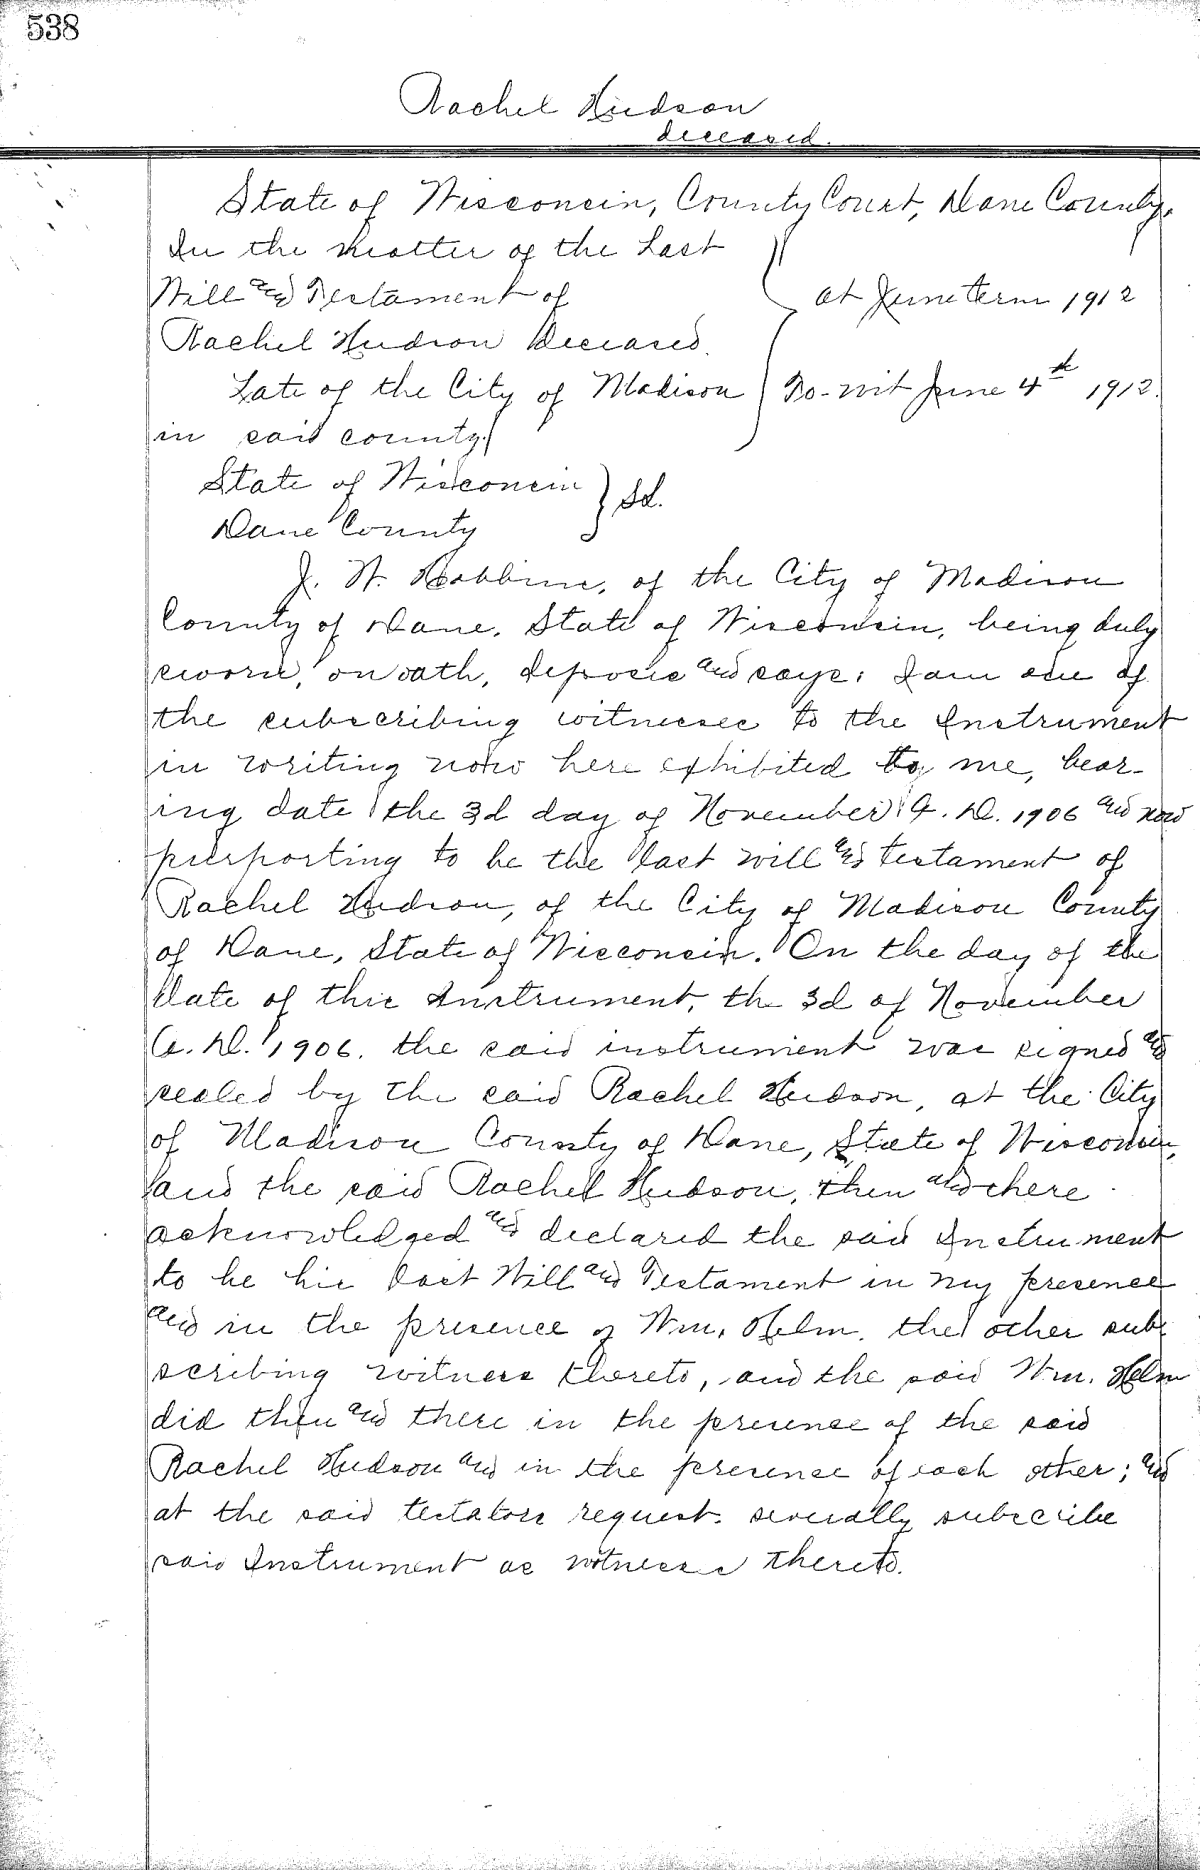 538
Rachel Hudson
deceased.
State of Wisconsin, County Court, Dane County.
In the Matter of the Last
Will and Testament of
at June term 1912
Rachel Hudson Deceased.
Late of the City of Madison
To-wit June 4th 1912.
in said county.
State of Wisconsin
Dane County
} Sd.
J. W. of the City of Madison
County of Dane, State of Wisconsin, being duly
sworn, on oath, deposes and says: I am one of
the subscribing witnesses to the Instrument
in writing now here exhibited to me, bear-
ing date the 3d day of November A. D. 1906 and now
purporting to be the last will and testament of
Rachel Hudson, of the City of Madison County
of Dane, State of Wisconsin. On the day of the
date of this Instrument, the 3d of November
A. D. 1906. the said instrument was signed and
sealed by the said Rachel Hudson, at the City
of Madison County of Dane, State of Wisconsin,
and the said Rachel Hudson, then and there
acknowledged and declared the said Instrument
to be his Last Will and Testament in my presence
and in the presence of Wm. Helm. the other sub-
scribing witness thereto, and the said Wm. Helm
did then and there in the presence of the said
Rachel Hudson and in the presence of each other; and
at the said testators request. severally subscribe
said Instrument as witnesses thereto.